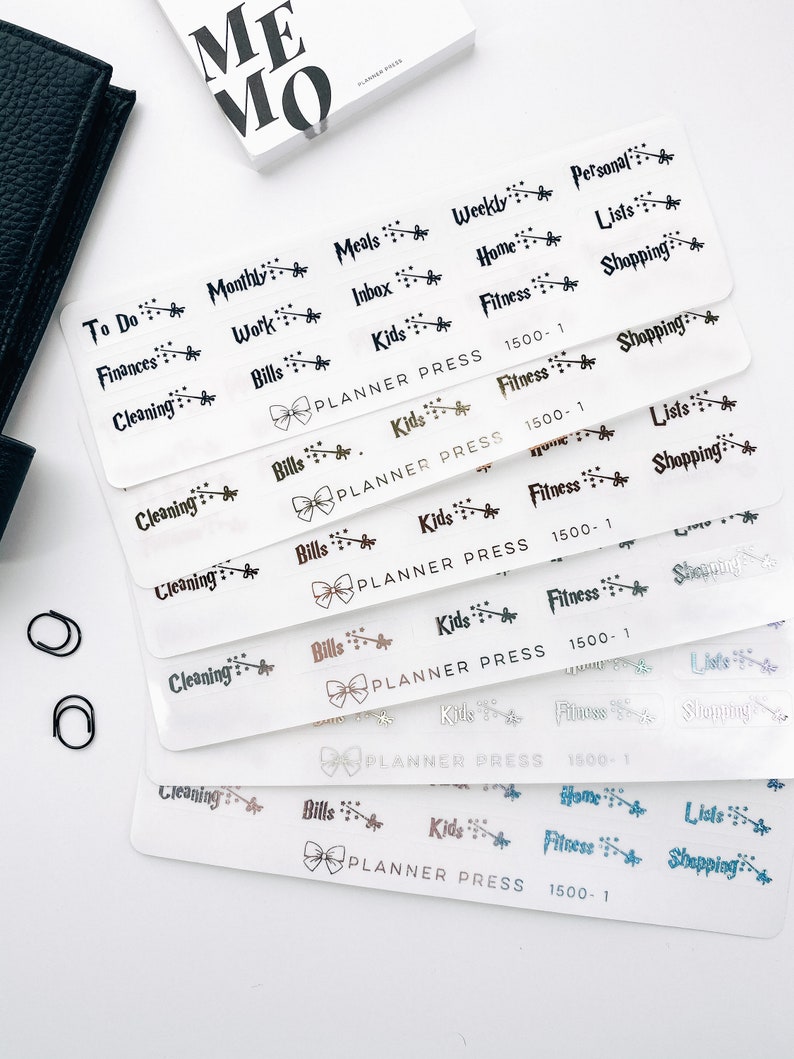 ME
MO
PLANNER PRESS
To Do Monthly Meals Weekly Personal
Finances Work Inbox Home Lists
Cleaning Bills Kids Fitness Shopping
PLANNER PRESS 1500- 1
Cleaning Bills Kids Fitness Shopping
PLANNER PRESS 1500- 1
Home Lists
Cleaning Bills Kids Fitness Shopping
PLANNER PRESS 1500- 1
Lists
Cleaning Bills Kids Fitness Shopping
PLANNER PRESS 1500- 1
Home Lists
Bills Kids Fitness Shopping
PLANNER PRESS 1500- 1
Home Lists
Cleaning Bills Kids Fitness Shopping
PLANNER PRESS 1500- 1